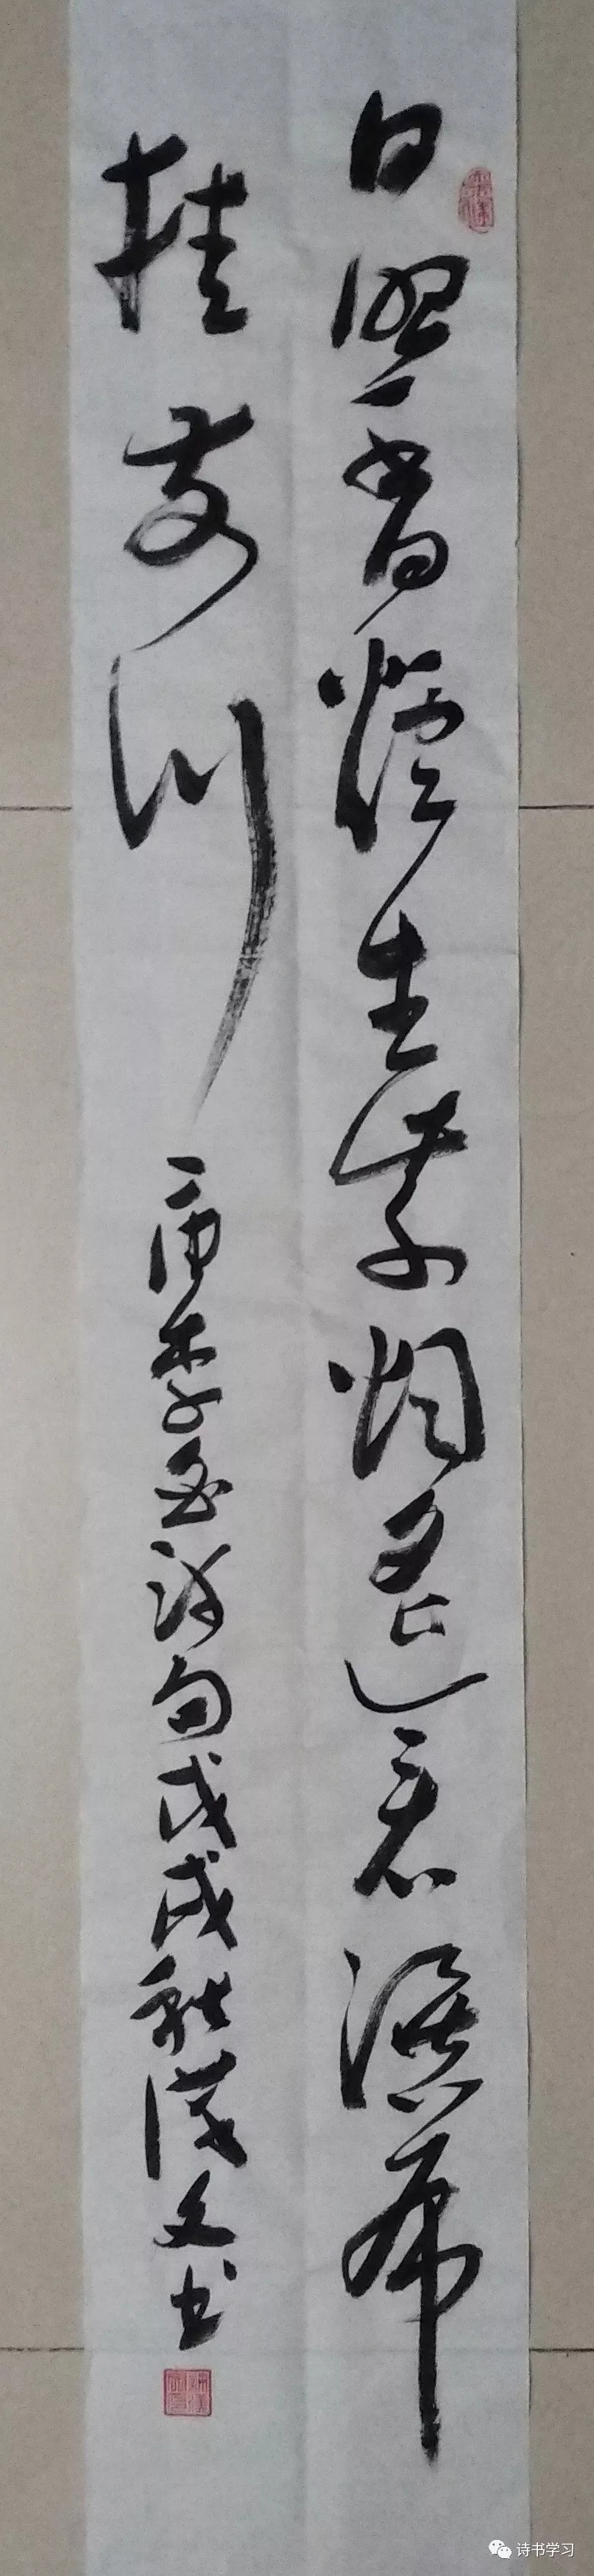 日照香炉生紫烟遥看瀑布
挂前川
唐李白诗句戊戌秋漢文书
诗书学习